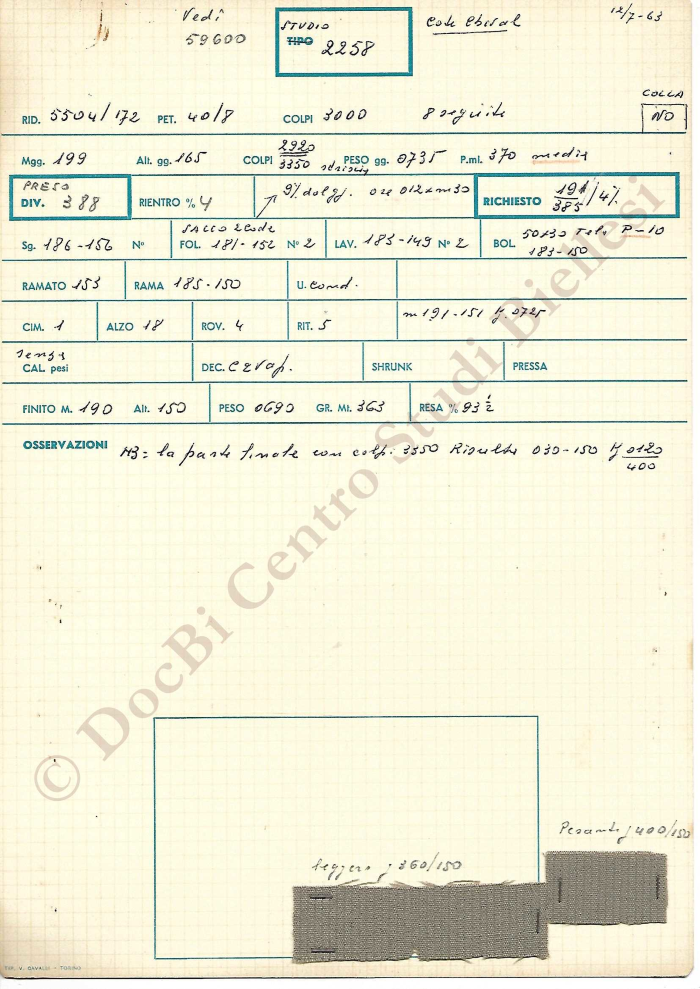 Vedi
59600
STUDIO
TIPO 2258
Cote Cheval
12/7-63
COLLA
NO
RID. 5504/172 PET. 40/8 COLPI 3000 8 seguite
Mgg. 199 Alt. gg. 165 COLPI 2920 3350 PESO gg. 0735 P.ml. 370 media
PRESO
DIV. 388 RIENTRO % 4 RICHIESTO 191/385/4%
Sg. 186-156 N° SACCO 2 Code FOL. 181-152 N° 2 LAV. 183-149 N° 2 BOL. 50130 Tel. P-10 183-150
RAMATO 153 RAMA 185-150 U. cond.
CIM. 1 ALZO 18 ROV. 4 RIT. 5 m 191-151 K. 0725
senza
CAL. pesi DEC. SHRUNK PRESSA
FINITO M. 190 Alt. 150 PESO 0690 GR. Mt. 363 RESA % 93 ½
OSSERVAZIONI la parte finale con colpi 3350 Risulta 030-150 K 0120
400
Pesante g 400/150
leggero g 360/150
TIP. V. CAVALLI - TORINO
© DocBi Centro Studi Biellesi